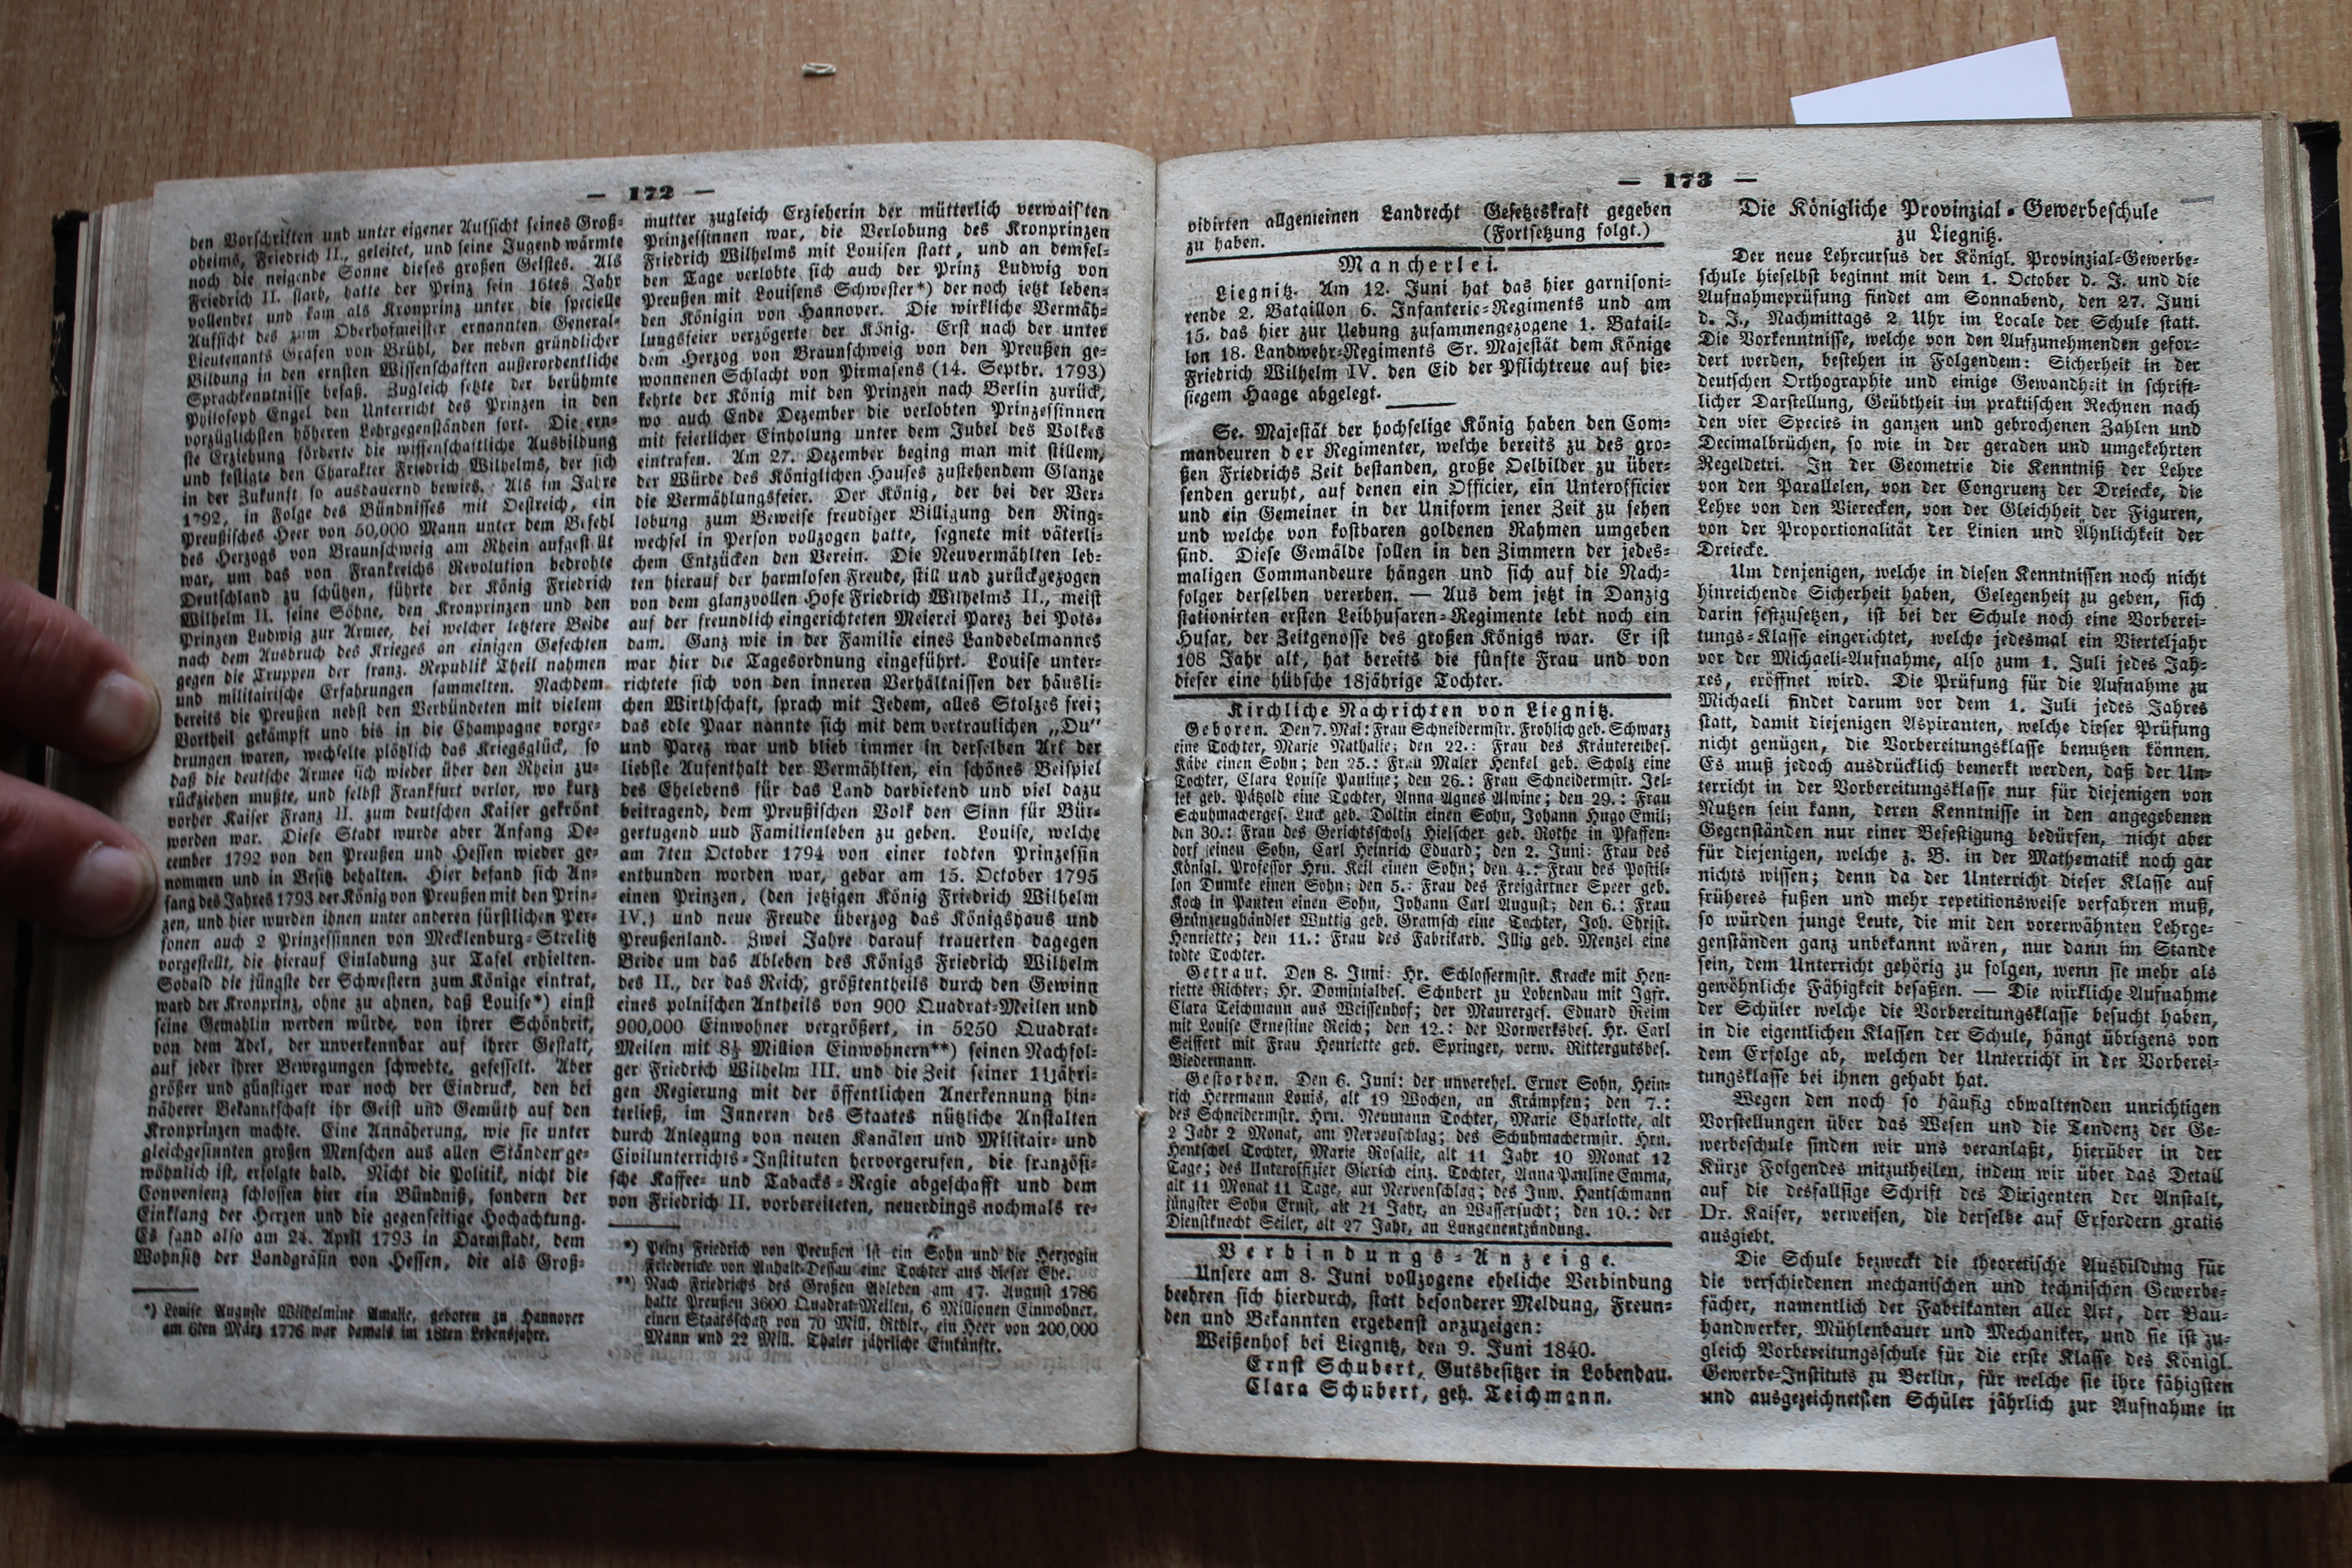 — 172 —
den Vorschriften und unter eigener Aufsicht seines Groß-
oheims, Friedrich II., geleitet, und seine Jugend wärmte
noch die neigende Sonne dieses großen Geistes. Als
Friedrich II. starb, hatte der Prinz sein 16tes Jahr
vollendet und kam als Kronprinz unter die specielle
Aufsicht des zum Oberhofmeister ernannten General-
Lieutenants Grafen von Brühl, der neben gründlicher
Bildung in den ernsten Wissenschaften außerordentliche
Sprachkenntnisse besaß. Zugleich setzte der berühmte
Philosoph Engel den Unterricht des Prinzen in den
vorzüglichsten höheren Lehrgegenständen fort. Die ern-
ste Erziehung förderte die wissenschaftliche Ausbildung
und festigte den Charakter Friedrich Wilhelms, der sich
in der Zukunft so ausdauernd bewies. Als im Jahre
1792, in Folge des Bündnisses mit Oestreich, ein
Preußisches Heer von 50,000 Mann unter dem Befehl
des Herzogs von Braunschweig am Rhein aufgestellt
war, um das von Frankreichs Revolution bedrohte
Deutschland zu schützen, führte der König Friedrich
Wilhelm II. seine Söhne, den Kronprinzen und den
Prinzen Ludwig zur Armee, bei welcher letztere Beide
nach dem Ausbruch des Krieges an einigen Gefechten
gegen die Truppen der franz. Republik Theil nahmen
und militairische Erfahrungen sammelten. Nachdem
bereits die Preußen nebst den Verbündeten mit vielem
Vortheil gekämpft und bis in die Champagne vorge-
drungen waren, wechselte plötzlich das Kriegsglück, so
daß die deutsche Armee sich wieder über den Rhein zu-
rückziehen mußte, und selbst Frankfurt verlor, wo kurz
vorher Kaiser Franz II. zum deutschen Kaiser gekrönt
worden war. Diese Stadt wurde aber Anfang De-
cember 1792 von den Preußen und Hessen wieder ge-
nommen und in Besitz behalten. Hier befand sich An-
fang des Jahres 1793 der König von Preußen mit den Prin-
zen, und hier wurden ihnen unter anderen fürstlichen Per-
sonen auch 2 Prinzessinnen von Mecklenburg-Strelitz
vorgestellt, die hierauf Einladung zur Tafel erhielten.
Sobald die jüngste der Schwestern zum Könige eintrat,
ward der Kronprinz, ohne zu ahnen, daß Louise*) einst
seine Gemahlin werden würde, von ihrer Schönheit,
von dem Adel, der unverkennbar auf ihrer Gestalt,
auf jeder ihrer Bewegungen schwebte, gefesselt. Aber
größer und günstiger war noch der Eindruck, den bei
näherer Bekanntschaft ihr Geist und Gemüth auf den
Kronprinzen machte. Eine Annäherung, wie sie unter
gleichgesinnten großen Menschen aus allen Ständen ge-
wöhnlich ist, erfolgte bald. Nicht die Politik, nicht die
Convenienz schlossen hier ein Bündniß, sondern der
Einklang der Herzen und die gegenseitige Hochachtung.
Es fand also am 24. April 1793 in Darmstadt, dem
Wohnsitz der Landgräfin von Hessen, die als Groß-
*) Louise Auguste Wilhelmine Amalie, geboren zu Hannover
am 6ten März 1776 war damals im 18ten Lebensjahre.
mutter zugleich Erzieherin der mütterlich verwais'ten
Prinzessinnen war, die Verlobung des Kronprinzen
Friedrich Wilhelms mit Louisen statt, und an demsel-
ben Tage verlobte sich auch der Prinz Ludwig von
Preußen mit Louisens Schwester*) der noch jetzt leben-
den Königin von Hannover. Die wirkliche Vermäh-
lungsfeier verzögerte der König. Erst nach der unter
dem Herzog von Braunschweig von den Preußen ge-
wonnenen Schlacht von Pirmasens (14. Septbr. 1793)
kehrte der König mit den Prinzen nach Berlin zurück,
wo auch Ende Dezember die verlobten Prinzessinnen
mit feierlicher Einholung unter dem Jubel des Volkes
eintrafen. Am 27. Dezember beging man mit stillem,
der Würde des Königlichen Hauses zustehendem Glanze
die Vermählungsfeier. Der König, der bei der Ver-
lobung zum Beweise freudiger Billigung den Ring-
wechsel in Person vollzogen hatte, segnete mit väterli-
chem Entzücken den Verein. Die Neuvermählten leb-
ten hierauf der harmlosen Freude, still und zurückgezogen
von dem glanzvollen Hofe Friedrich Wilhelms II., meist
auf der freundlich eingerichteten Meierei Parez bei Pots-
dam. Ganz wie in der Familie eines Landedelmannes
war hier die Tagesordnung eingeführt. Louise unter-
richtete sich von den inneren Verhältnissen der häusli-
chen Wirthschaft, sprach mit Jedem, alles Stolzes frei;
das edle Paar nannte sich mit dem vertraulichen „Du“
und Parez war und blieb immer in derselben Art der
liebste Aufenthalt der Vermählten, ein schönes Beispiel
des Ehelebens für das Land darbietend und viel dazu
beitragend, dem Preußischen Volk den Sinn für Bür-
gertugend uud Familienleben zu geben. Louise, welche
am 7ten October 1794 von einer todten Prinzessin
entbunden worden war, gebar am 15. October 1795
einen Prinzen, (den jetzigen König Friedrich Wilhelm
IV.) und neue Freude überzog das Königshaus und
Preußenland. Zwei Jahre darauf trauerten dagegen
Beide um das Ableben des Königs Friedrich Wilhelm
des II., der das Reich, größtentheils durch den Gewinn
eines polnischen Antheils von 900 Quadrat-Meilen und
900,000 Einwohner vergrößert, in 5250 Quadrat-
Meilen mit 8½ Million Einwohnern**) seinen Nachfol-
ger Friedrich Wilhelm III. und die Zeit seiner 11jähri-
gen Regierung mit der öffentlichen Anerkennung hin-
terließ, im Inneren des Staates nützliche Anstalten
durch Anlegung von neuen Kanälen und Militair- und
Civilunterrichts-Instituten hervorgerufen, die französi-
sche Kaffee- und Tabacks-Regie abgeschafft und dem
von Friedrich II. vorbereiteten, neuerdings nochmals re-
*) Prinz Friedrich von Preußen ist ein Sohn und die Herzogin
Friedericke von Anhalt-Dessau eine Tochter aus dieser Ehe.
**) Nach Friedrichs des Großen Ableben am 17. August 1786
hatte Preußen 3600 Quadrat-Meilen, 6 Millionen Einwohner,
einen Staatsschatz von 70 Mill. Rthlr., ein Heer von 200,000
Mann und 22 Mill. Thaler jährliche Einkünfte.
— 173 —
vidirten allgemeinen Landrecht Gesetzeskraft gegeben
zu haben. (Fortsetzung folgt.)
Mancherlei.
Liegnitz. Am 12. Juni hat das hier garnisoni-
rende 2. Bataillon 6. Infanterie-Regiments und am
15. das hier zur Uebung zusammengezogene 1. Batail-
lon 18. Landwehr-Regiments Sr. Majestät dem Könige
Friedrich Wilhelm IV. den Eid der Pflichtreue auf hie-
sigem Haage abgelegt.
Se. Majestät der hochselige König haben den Com-
mandeuren der Regimenter, welche bereits zu des gro-
ßen Friedrichs Zeit bestanden, große Oelbilder zu über-
senden geruht, auf denen ein Officier, ein Unterofficier
und ein Gemeiner in der Uniform jener Zeit zu sehen
und welche von kostbaren goldenen Rahmen umgeben
sind. Diese Gemälde sollen in den Zimmern der jedes-
maligen Commandeure hängen und sich auf die Nach-
folger derselben vererben. — Aus dem jetzt in Danzig
stationirten ersten Leibhusaren-Regimente lebt noch ein
Husar, der Zeitgenosse des großen Königs war. Er ist
108 Jahr alt, hat bereits die fünfte Frau und von
dieser eine hübsche 18jährige Tochter.
Kirchliche Nachrichten von Liegnitz.
Geboren. Den 7. Mai: Frau Schneidermstr. Frohlich geb. Schwarz
eine Tochter, Marie Nathalie; den 22.: Frau des Kräutereibes.
Käbe einen Sohn; den 25.: Frau Maler Henkel geb. Scholz eine
Tochter, Clara Louise Pauline; den 26.: Frau Schneidermstr. Jel-
lek geb. Pätzold eine Tochter, Anna Agnes Alwine; den 29.: Frau
Schuhmacherges. Luck geb. Döltin einen Sohn, Johann Hugo Emil;
den 30.: Frau des Gerichtsscholz Hielscher geb. Rothe in Pfaffen-
dorf einen Sohn, Carl Heinrich Eduard; den 2. Juni: Frau des
Königl. Professor Hrn. Keil einen Sohn; den 4.: Frau des Postil-
lon Dumke einen Sohn; den 5.: Frau des Freigärtner Speer geb.
Koch in Panten einen Sohn, Johann Carl August; den 6.: Frau
Grünzeughändler Wuttig geb. Gramsch eine Tochter, Joh. Christ.
Henriette; den 11.: Frau des Fabrikarb. Illig geb. Menzel eine
todte Tochter.
Getraut. Den 8. Juni: Hr. Schlossermstr. Kracke mit Hen-
riette Richter; Hr. Dominialbes. Schubert zu Lobendau mit Igfr.
Clara Teichmann aus Weissenhof; der Maurerges. Eduard Reim
mit Louise Ernestine Reich; den 12.: der Vorwerksbes. Hr. Carl
Seiffert mit Frau Henriette geb. Springer, verw. Rittergutsbes.
Biedermann.
Gestorben. Den 6. Juni: der unverehel. Exner Sohn, Hein-
rich Herrmann Louis, alt 19 Wochen, an Krämpfen; den 7.:
des Schneidermstr. Hrn. Neumann Tochter, Marie Charlotte, alt
2 Jahr 2 Monat, am Nervenschlag; des Schuhmachermstr. Hrn.
Hentschel Tochter, Marie Rosalie, alt 11 Jahr 10 Monat 12
Tage; des Unteroffizier Giersch einz. Tochter, Anna Pauline Emma,
alt 11 Monat 11 Tage, am Nervenschlag; des Inw. Hantschmann
jüngster Sohn Ernst, alt 21 Jahr, an Wassersucht; den 10.: der
Dienstknecht Seiler, alt 27 Jahr, an Lungenentzündung.
Verbindungs-Anzeige.
Unsere am 8. Juni vollzogene eheliche Verbindung
beehren sich hierdurch, statt besonderer Meldung, Freun-
den und Bekannten ergebenst anzuzeigen:
Weißenhof bei Liegnitz, den 9. Juni 1840.
Ernst Schubert, Gutsbesitzer in Lobendau.
Clara Schubert, geb. Teichmann.
Die Königliche Provinzial-Gewerbeschule
zu Liegnitz.
Der neue Lehrcursus der Königl. Provinzial-Gewerbe-
schule hieselbst beginnt mit dem 1. October d. J. und die
Aufnahmeprüfung findet am Sonnabend, den 27. Juni
d. J., Nachmittags 2 Uhr im Locale der Schule statt.
Die Vorkenntnisse, welche von den Aufzunehmenden gefor-
dert werden, bestehen in Folgendem: Sicherheit in der
deutschen Orthographie und einige Gewandheit in schrift-
licher Darstellung, Geübtheit im praktischen Rechnen nach
den vier Species in ganzen und gebrochenen Zahlen und
Decimalbrüchen, so wie in der geraden und umgekehrten
Regeldetri. In der Geometrie die Kenntniß der Lehre
von den Parallelen, von der Congruenz der Dreiecke, die
Lehre von den Vierecken, von der Gleichheit der Figuren,
von der Proportionalität der Linien und Ähnlichkeit der
Dreiecke.
Um denjenigen, welche in diesen Kenntnissen noch nicht
hinreichende Sicherheit haben, Gelegenheit zu geben, sich
darin festzusetzen, ist bei der Schule noch eine Vorberei-
tungs-Klasse eingerichtet, welche jedesmal ein Vierteljahr
vor der Michaeli-Aufnahme, also zum 1. Juli jedes Jah-
res, eröffnet wird. Die Prüfung für die Aufnahme zu
Michaeli findet darum vor dem 1. Juli jedes Jahres
statt, damit diejenigen Aspiranten, welche dieser Prüfung
nicht genügen, die Vorbereitungsklasse benutzen können.
Es muß jedoch ausdrücklich bemerkt werden, daß der Un-
terricht in der Vorbereitungsklasse nur für diejenigen von
Nutzen sein kann, deren Kenntnisse in den angegebenen
Gegenständen nur einer Befestigung bedürfen, nicht aber
für diejenigen, welche z. B. in der Mathematik noch gar
nichts wissen; denn da der Unterricht dieser Klasse auf
früheres fußen und mehr repetitionsweise verfahren muß,
so würden junge Leute, die mit den vorerwähnten Lehrge-
genständen ganz unbekannt wären, nur dann im Stande
sein, dem Unterricht gehörig zu folgen, wenn sie mehr als
gewöhnliche Fähigkeit besaßen. — Die wirkliche Aufnahme
der Schüler welche die Vorbereitungsklasse besucht haben,
in die eigentlichen Klassen der Schule, hängt übrigens von
dem Erfolge ab, welchen der Unterricht in der Vorberei-
tungsklasse bei ihnen gehabt hat.
Wegen den noch so häufig obwaltenden unrichtigen
Vorstellungen über das Wesen und die Tendenz der Ge-
werbeschule finden wir uns veranlaßt, hierüber in der
Kürze Folgendes mitzutheilen, indem wir über das Detail
auf die desfallsige Schrift des Dirigenten der Anstalt,
Dr. Kaiser, verweisen, die derselbe auf Erfordern gratis
ausgiebt.
Die Schule bezweckt die theoretische Ausbildung für
die verschiedenen mechanischen und technischen Gewerbe-
fächer, namentlich der Fabrikanten aller Art, der Bau-
handwerker, Mühlenbauer und Mechaniker, und sie ist zu-
gleich Vorbereitungsschule für die erste Klasse des Königl.
Gewerbe-Instituts zu Berlin, für welche sie ihre fähigsten
und ausgezeichnetsten Schüler jährlich zur Aufnahme in